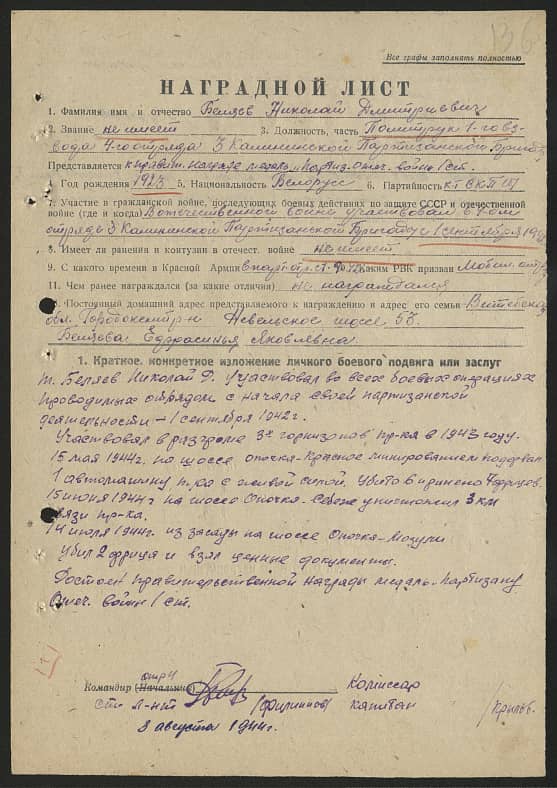 136
Все графы заполнять полностью
НАГРАДНОЙ ЛИСТ
1. Фамилия имя и отчество Беляев Николай Дмитриевич
2. Звание не имеет 3. Должность, часть Политрук 1-го вз-
вода 4-го отряда 3 Калининской Партизанской Бригады
Представляется к правит. награде медаль „Партиз. Отеч. войны 1 ст.
4. Год рождения 1923 5. Национальность Белорусс 6. Партийность
7. Участие в гражданской войне, последующих боевых действиях по защите СССР и отечественной
войне (где и когда) В отечественной войне участвовал в 4-ом
отряде 3 Калининской Партизанской Бригады с 1 сентября 194
8. Имеет ли ранения и контузии в отечест. войне не имеет
9. С какого времени в Красной Армии в парт. отр. с 1. 9. 42 каким РВК призван
11. Чем ранее награждался (за какие отличия) не награждался
Постоянный домашний адрес представляемого к награждению и адрес его семьи Витебская
обл. Городокский р-н Невельское шоссе 57.
Беляева Ефрасинья Яковлевна
1. Краткое, конкретное изложение личного боевого подвига или заслуг
т. Беляев Николай Д. Участвовал во всех боевых операциях
проводимых отрядом с начала своей партизанской
деятельности – 1 сентября 1942 г.
Участвовал в разгроме 3х горнизонов пр-ка в 1943 году.
15 мая 1944 г. на шоссе Опочка-Красное минированием подорвал
1 автомашину пр-ка с живой силой. Убито 6 и ранено 4 фрицев.
15 июня 1944 г на шоссе Опочка-Себеж уничтожил 3 км
связи пр-ка.
14 июля 1944 г. из засады на шоссе Опочка-Мозули
убил 2 фрица и взял ценные документы.
Достоен правительственной награды медаль-Партизану
Отеч. войны 1 ст.
отр 4
Командир (Начальник) Комиссар
ст. л-нт (Филиппов) капитан
8 августа 1944 г.